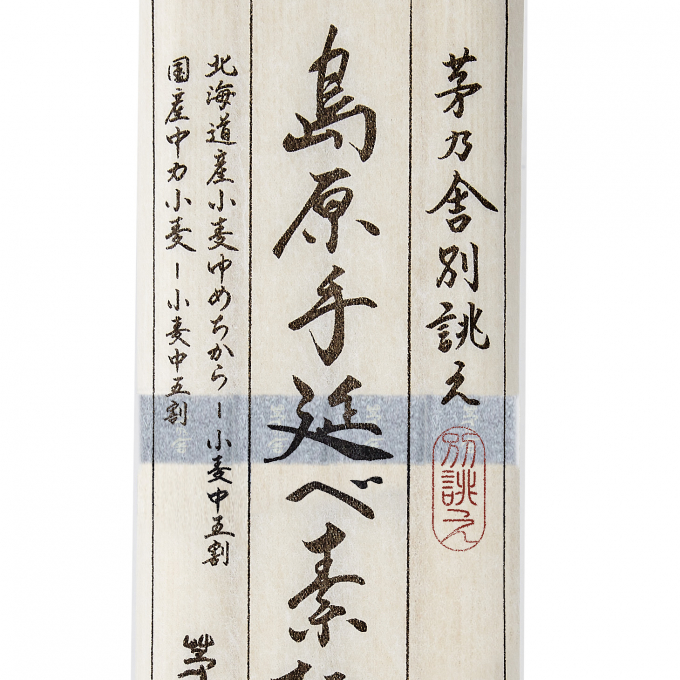 茅乃舎別誂え
別誂え
島原手延べ素
北海道産小麦ゆめちから－小麦中五割
国産中力小麦－小麦中五割
茅